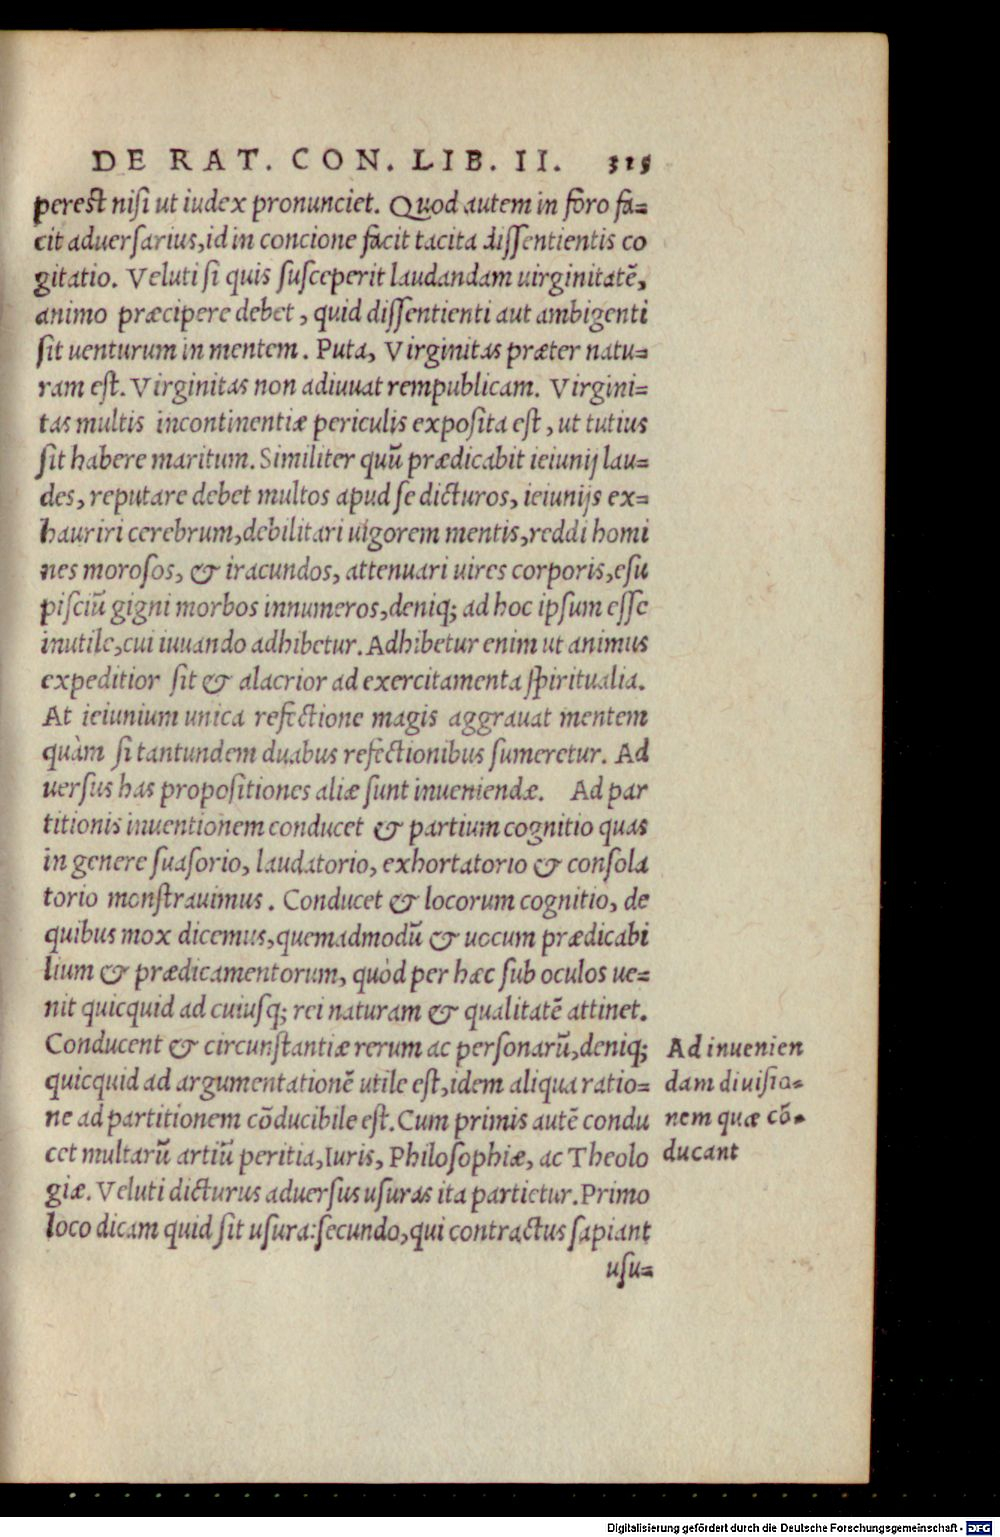 DE RAT. CON. LIB. II. 315
perest nisi ut iudex pronunciet. Quod autem in foro fa=
cit aduersarius,id in concione facit tacita dissentientis co
gitatio. Veluti si quis susceperit laudandam uirginitatē,
animo præcipere debet, quid dissentienti aut ambigenti
sit uenturum in mentem. Puta, Virginitas præter natu=
ram est. Virginitas non adiuuat rempublicam. Virgini=
tas multis incontinentiæ periculis exposita est, ut tutius
sit habere maritum. Similiter quū prædicabit ieiunij lau=
des, reputare debet multos apud se dicturos, ieiunijs ex=
hauriri cerebrum,debilitari uigorem mentis,reddi homi
nes morosos, & iracundos, attenuari uires corporis,esu
pisciū gigni morbos innumeros,deniq; ad hoc ipsum esse
inutile,cui iuuando adhibetur. Adhibetur enim ut animus
expeditior sit & alacrior ad exercitamenta spiritualia.
At ieiunium unica refectione magis aggrauat mentem
quàm si tantundem duabus refectionibus sumeretur. Ad
uersus has propositiones aliæ sunt inueniendæ. Ad par
titionis inuentionem conducet & partium cognitio quas
in genere suasorio, laudatorio, exhortatorio & consola
torio monstrauimus. Conducet & locorum cognitio, de
quibus mox dicemus,quemadmodū & uocum prædicabi
lium & prædicamentorum, quòd per hæc sub oculos ue=
nit quicquid ad cuiusq; rei naturam & qualitatē attinet.
Conducent & circunstantiæ rerum ac personarū,deniq;
quicquid ad argumentationē utile est,idem aliqua ratio=
ne ad partitionem cōducibile est. Cum primis autē condu
cet multarū artiū peritia,Iuris, Philosophiæ, ac Theolo
giæ. Veluti dicturus aduersus usuras ita partietur. Primo
loco dicam quid sit usura:secundo,qui contractus sapiant
usu=
Ad inuenien
dam diuisio=
nem quæ cō=
ducant
Digitalisierung gefördert durch die Deutsche Forschungsgemeinschaft - DFG